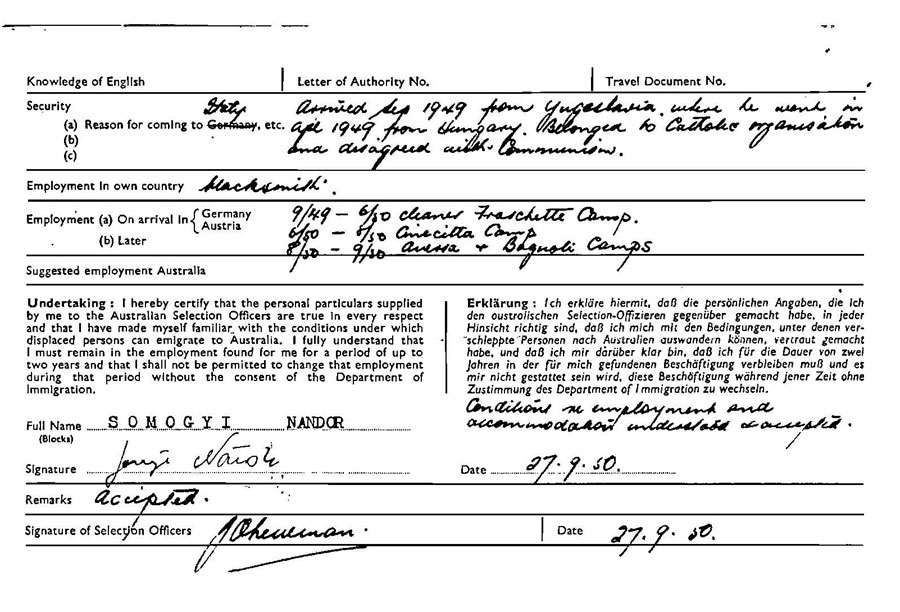 Knowledge of English Letter of Authority No. Travel Document No.
Security Italy Arrived Sep 1949 from Yugoslavia where he went in
(a) Reason for coming to Germany, etc. Apl 1949 from Hungary. Belonged to Catholic organisation
(b) and disagreed with Communism.
(c)
Employment in own country blacksmith.
Employment (a) On arrival in { Germany 9/49 – 6/50 cleaner Fraschette Camp.
Austria 6/50 – 8/50 Cinecitta Camp
(b) Later 8/50 – 9/50 Aversa + Bagnoli Camps
Suggested employment Australia
Undertaking : I hereby certify that the personal particulars supplied
by me to the Australian Selection Officers are true in every respect
and that I have made myself familiar with the conditions under which
displaced persons can emigrate to Australia. I fully understand that
I must remain in the employment found for me for a period of up to
two years and that I shall not be permitted to change that employment
during that period without the consent of the Department of
Immigration.
Erklärung : Ich erkläre hiermit, daß die persönlichen Angaben, die Ich
den oustrolischen Selection-Offizieren gegenüber gemacht habe, in jeder
Hinsicht richtig sind, daß ich mich mit den Bedingungen, unter denen ver-
schleppte Personen nach Australien auswandern können, vertraut gemacht
habe, und daß ich mir darüber klar bin, daß ich für die Dauer von zwei
Jahren in der für mich gefundenen Beschäftigung verbleiben muß und es
mir nicht gestattet sein wird, diese Beschäftigung während jener Zeit ohne
Zustimmung des Department of Immigration zu wechseln.
Conditions re employment and
accommodation understood & accepted.
Full Name SOMOGYI NANDOR
(Blocks)
Signature Date 27.9.50.
Remarks Accepted.
Signature of Selection Officers Date 27.9.50.